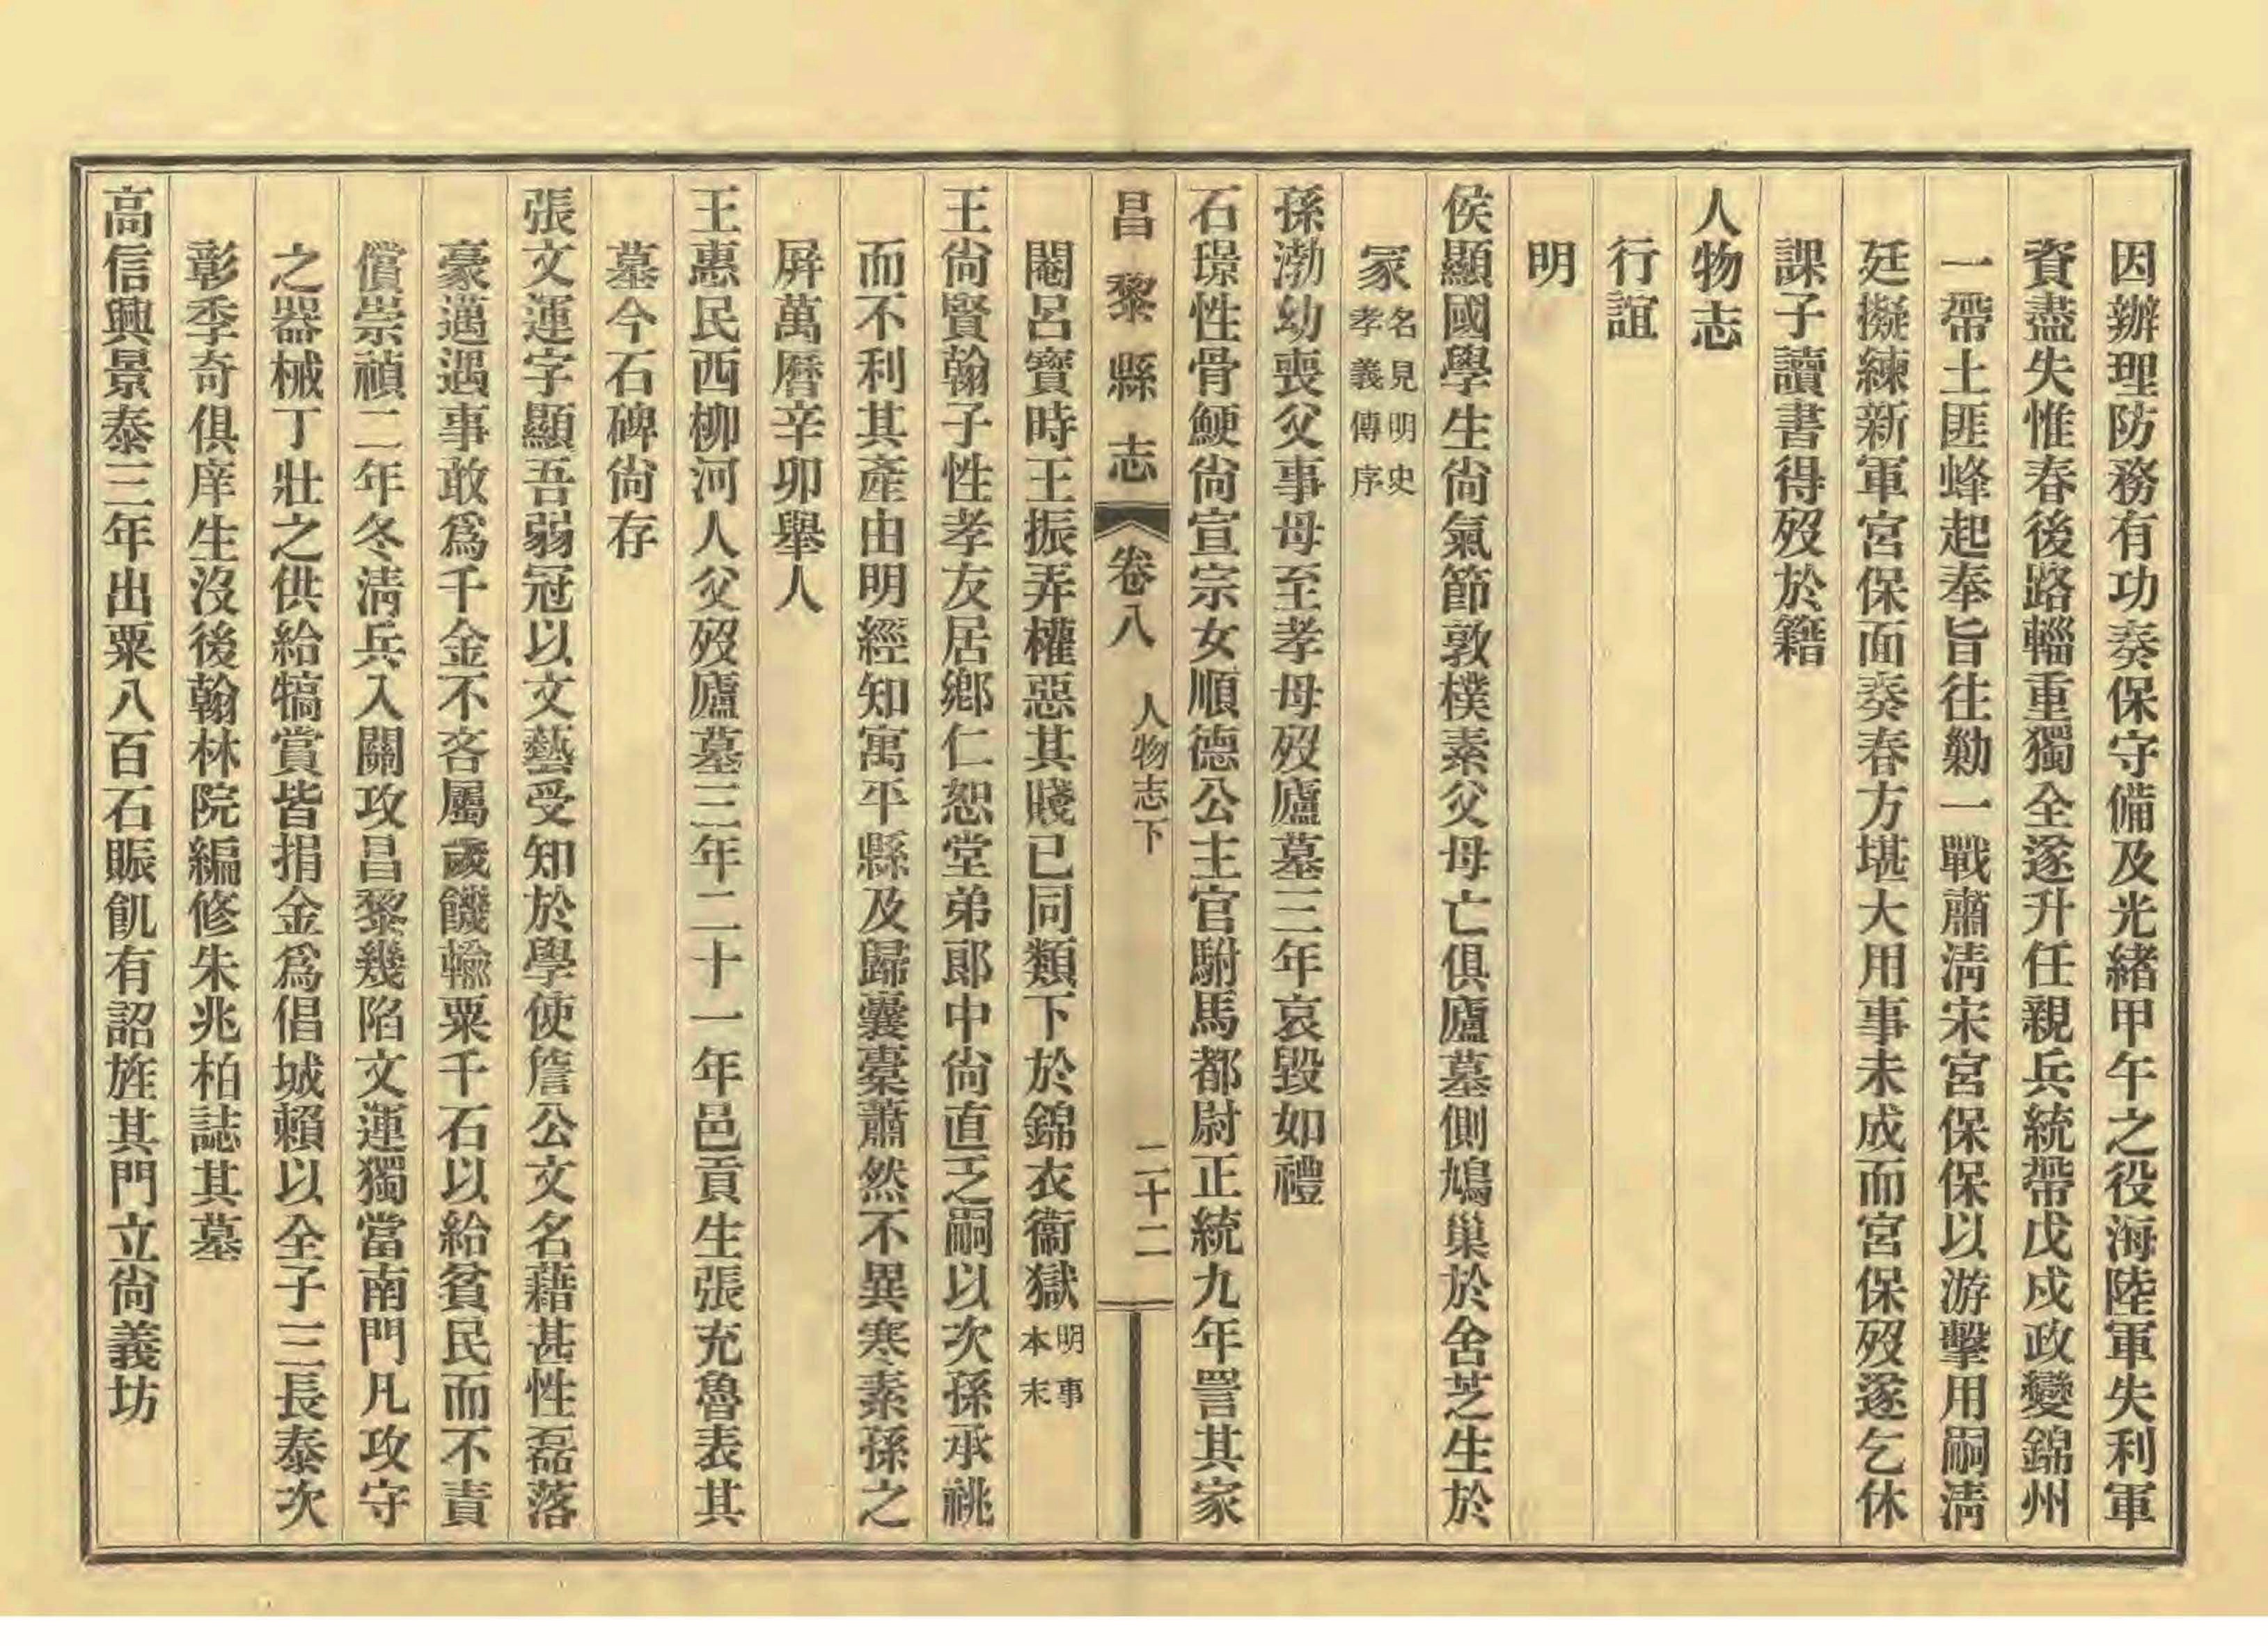 因辦理防務有功奏保守備及光緒甲午之役海陸軍失利軍
資盡失惟春後路輜重獨全遂升任親兵統帶戊戌政變錦州
一帶土匪蜂起奉旨往勦一戰肅清宋宮保保以游擊用嗣清
廷擬練新軍宮保面奏春方堪大用事未成而宮保歿遂乞休
課子讀書得歿於籍
人物志
行誼
明
侯顯國學生尙氣節敦樸素父母亡俱廬墓側鳩巢於舍芝生於
冢名見明史
孝義傳序
孫渤幼喪父事母至孝母歿廬墓三年哀毀如禮
石璟性骨鯁尙宣宗女順德公主官駙馬都尉正統九年詈其家
昌黎縣志 卷八 人物志下 二十二
閹呂寶時王振弄權惡其賤已同類下於錦衣衞獄明事
本末
王尙賢翰子性孝友居鄉仁恕堂弟郎中尙直乏嗣以次孫承祧
而不利其產由明經知寓平縣及歸囊橐蕭然不異寒素孫之
屏萬曆辛卯舉人
王惠民西柳河人父歿廬墓三年二十一年邑貢生張充魯表其
墓今石碑尙存
張文運字顯吾弱冠以文藝受知於學使詹公文名藉甚性磊落
豪邁遇事敢爲千金不吝屬歲饑輸粟千石以給貧民而不責
償崇禎二年冬淸兵入關攻昌黎幾陷文運獨當南門凡攻守
之器械丁壯之供給犒賞皆捐金爲倡城賴以全子三長泰次
彰季奇俱庠生沒後翰林院編修朱兆柏誌其墓
高信興景泰三年出粟八百石賑飢有詔旌其門立尙義坊